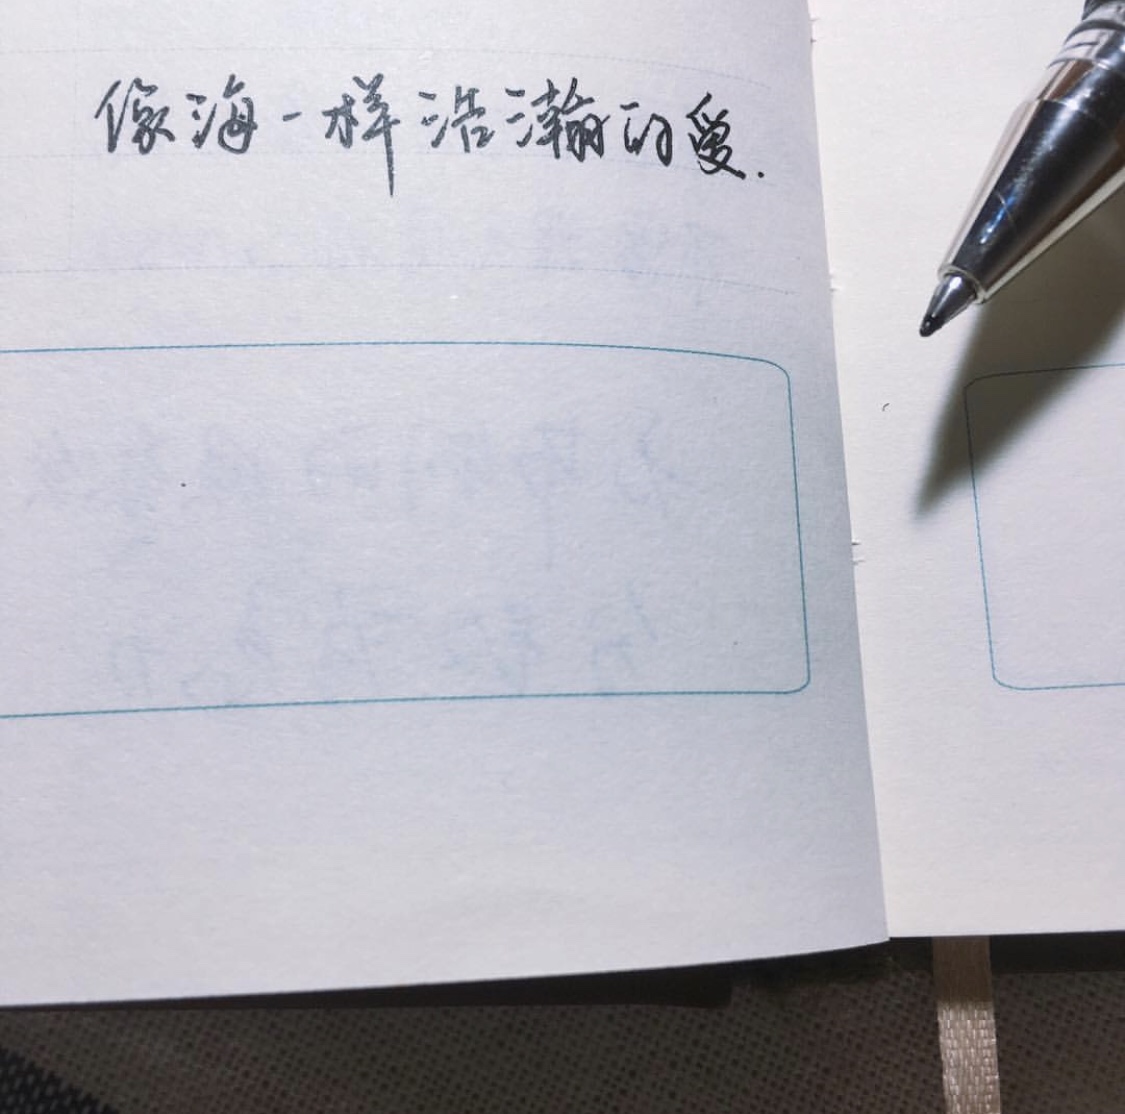 像海一样浩瀚的爱.